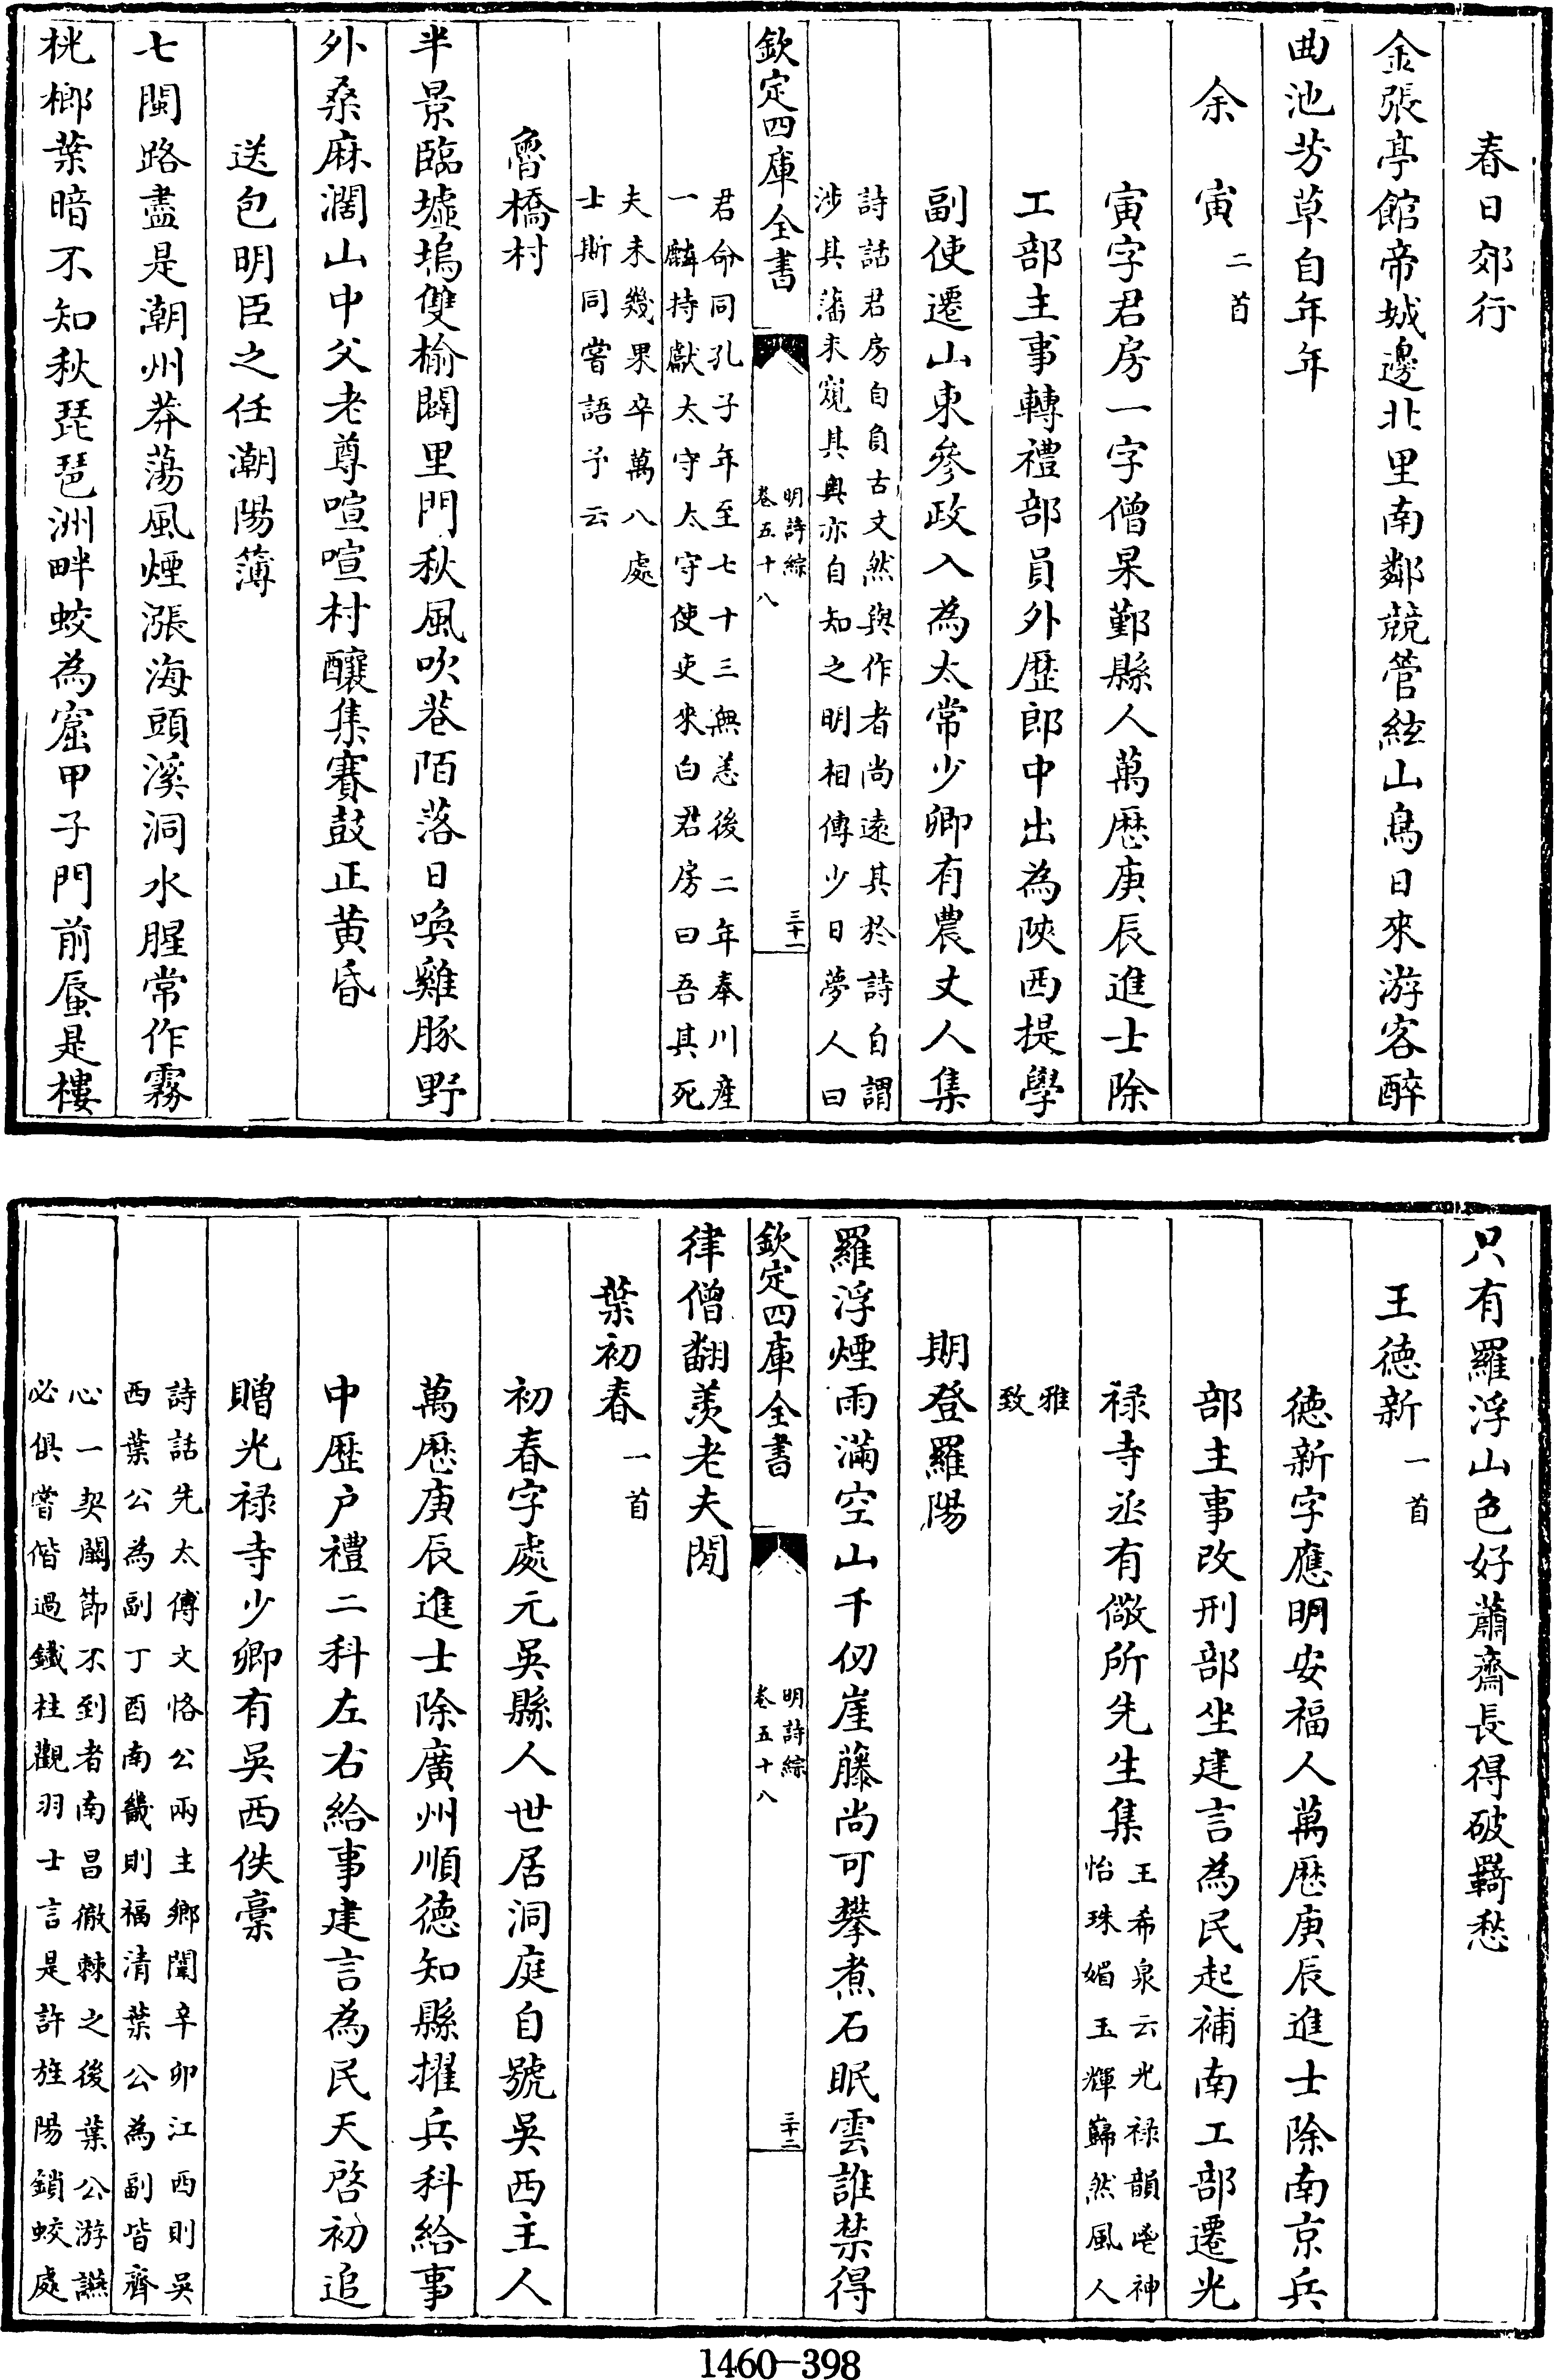 春日郊行
金張亭館帝城邊北里南鄰競管絃山鳥日來游客醉
曲池芳草自年年
余寅二首
寅字君房一字僧杲鄞縣人萬厯庚辰進士除
工部主事轉禮部員外歴郎中出為陜西提學
副使遷山東參政入為太常少卿有農丈人集
詩話君房自負古文然與作者尚遠其於詩自謂
涉其藩未窺其奥亦自知之明相傳少日夢人曰
欽定四庫全書
明詩綜
卷五十八
三十一
君命同孔子年至七十三無恙後二年奉川産
一麟持獻太守太守使吏來白君房曰吾其死
夫未幾果卒萬八處
士斯同嘗語予云
魯橋村
半景臨墟塢雙榆闢里門秋風吹巷陌落日喚雞豚野
外桑麻濶山中父老尊喧喧村釀集賽鼓正黄昏
送包明臣之任潮陽簿
七閩路盡是潮州莽蕩風煙漲海頭溪洞水腥常作霧
桄榔葉暗不知秋琵琶洲畔蛟為窟甲子門前蜃是樓
只有羅浮山色好蕭齋長得破羇愁
王徳新一首
徳新字應明安福人萬厯庚辰進士除南京兵
部主事改刑部坐建言為民起補南工部遷光
禄寺丞有儆所先生集
王希泉云光禄韻邕神
怡珠媚玉輝巋然風人
雅
致
期登羅陽
羅浮煙雨滿空山千仭崖藤尚可攀煮石眠雲誰禁得
欽定四庫全書
明詩綜
卷五十八
三十二
律僧翻羡老夫閒
葉初春一首
初春字處元吳縣人世居洞庭自號吳西主人
萬厯庚辰進士除廣州順徳知縣擢兵科給事
中歴户禮二科左右給事建言為民天啓初追
贈光禄寺少卿有吳西佚稾
詩話先太傅文恪公兩主鄉闈辛卯江西則吳
西葉公為副丁酉南畿則福清葉公為副皆齊
心一契關節不到者南昌徹棘之後葉公游讌
必俱嘗偕過鐵柱觀羽士言是許旌陽鎖蛟處
1460-398